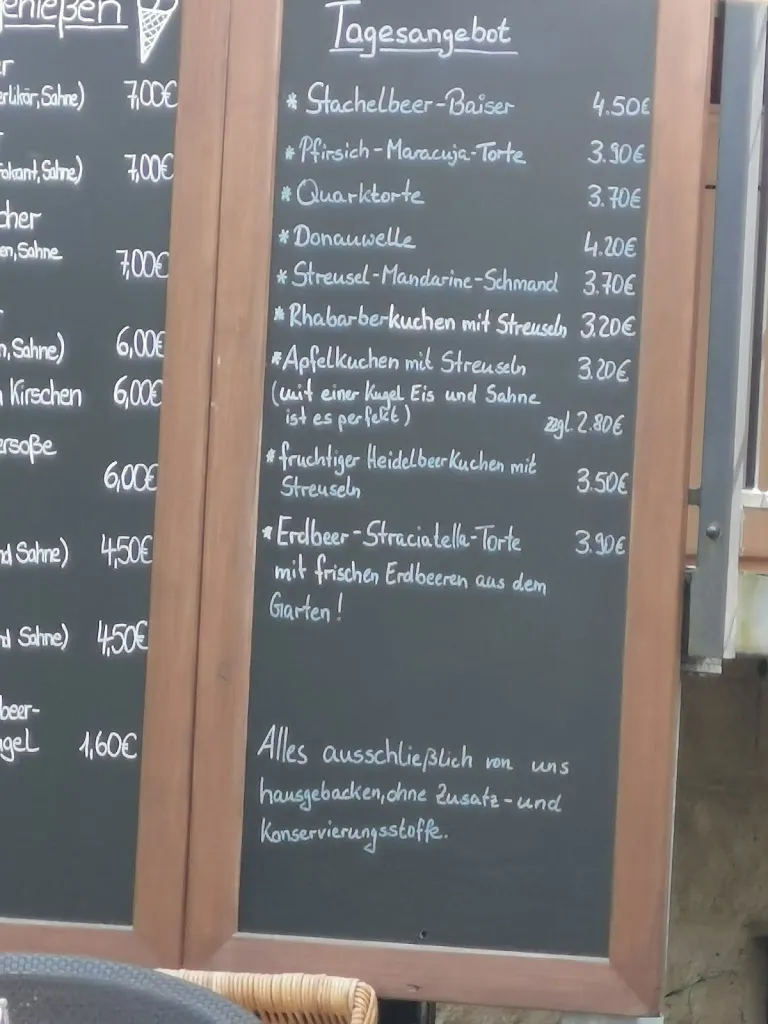 genießen
erlikör, Sahne) 7,00€
okant, Sahne) 7,00€
cher
en, Sahne 7,00€
n, Sahne) 6,00€
n Kirschen 6,00€
ersoße
6,00€
nd Sahne) 4,50€
nd Sahne) 4,50€
beer-
gel 1,60€
Tagesangebot
* Stachelbeer-Baiser 4.50€
* Pfirsich-Maracuja-Torte 3.90€
* Quarktorte 3.70€
* Donauwelle 4.20€
* Streusel-Mandarine-Schmand 3.70€
* Rhabarberkuchen mit Streuseln 3.20€
* Apfelkuchen mit Streuseln 3.20€
(mit einer Kugel Eis und Sahne
ist es perfekt) zzgl. 2.80€
* fruchtiger Heidelbeerkuchen mit
Streuseln 3.50€
* Erdbeer-Straciatella-Torte 3.90€
mit frischen Erdbeeren aus dem
Garten!
Alles ausschließlich von uns
hausgebacken, ohne Zusatz- und
Konservierungsstoffe.